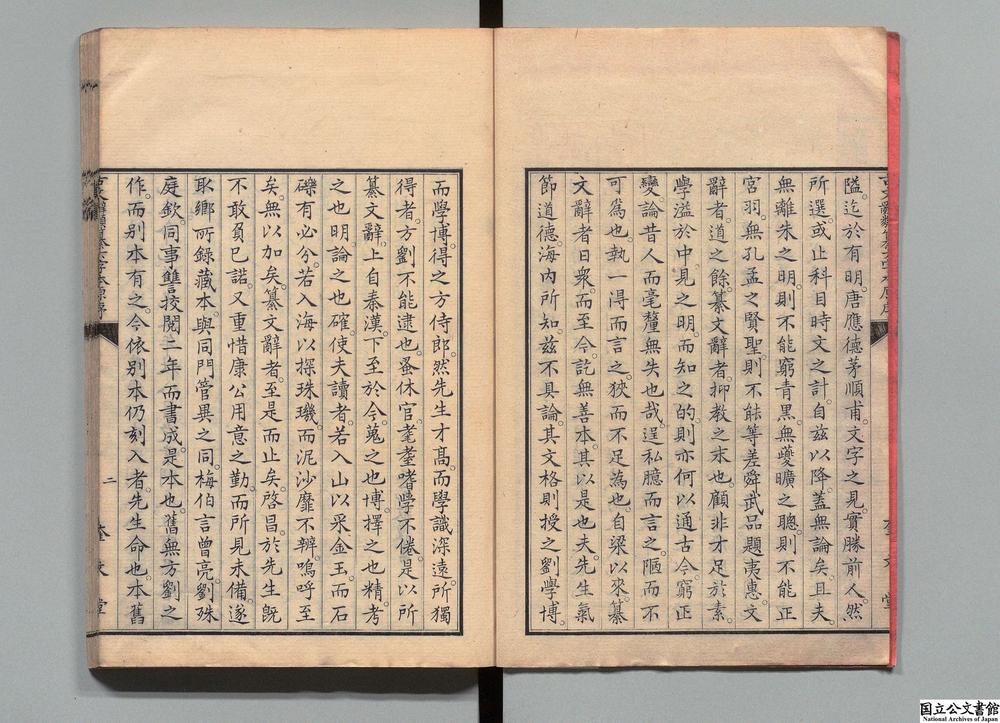 隘。迄於有明。唐應德茅順甫。文字之見。實勝前人。然
所選。或止科目時文之計。自兹以降。蓋無論矣。且夫
無離朱之明。則不能窮青黒。無夔曠之聰。則不能正
宮羽。無孔孟之賢聖。則不能等差舜武。品題夷惠。文
辭者。道之餘。纂文辭者。抑教之末也。顧非才足於素。
學溢於中。見之明。而知之的。則亦何以通古今。窮正
變。論昔人而毫釐無失也哉。逞私臆而言之。陋而不
可爲也。執一得而言之。狹而不足爲也。自梁以來。纂
文辭者日衆。而至今訖無善本。其以是也夫。先生氣
節道德。海内所知。兹不具論。其文格則授之劉學博。
而學博。得之方侍郎。然先生才髙。而學識深遠。所獨
得者。方劉不能逮也。蚤休官。耄耋嗜學不倦。是以所
纂文辭。上自秦漢。下至於今。蒐之也博。擇之也精。考
之也明。論之也確。使夫讀者。若入山以采金玉。而石
礫有必分。若入海以探珠璣。而泥沙靡不辨。嗚呼至
矣。無以加矣。纂文辭者。至是而止矣。啓昌。於先生既
不敢負已諾。又重惜康公用意之勤。而所見未備。遂
取鄉所録藏本。與同門管異之同。梅伯言曾亮。劉殊
庭欽同事讐挍。閲二年而書成。是本也。舊無方劉之
作。而别本有之。今依别本仍刻入者。先生命也。本舊
二